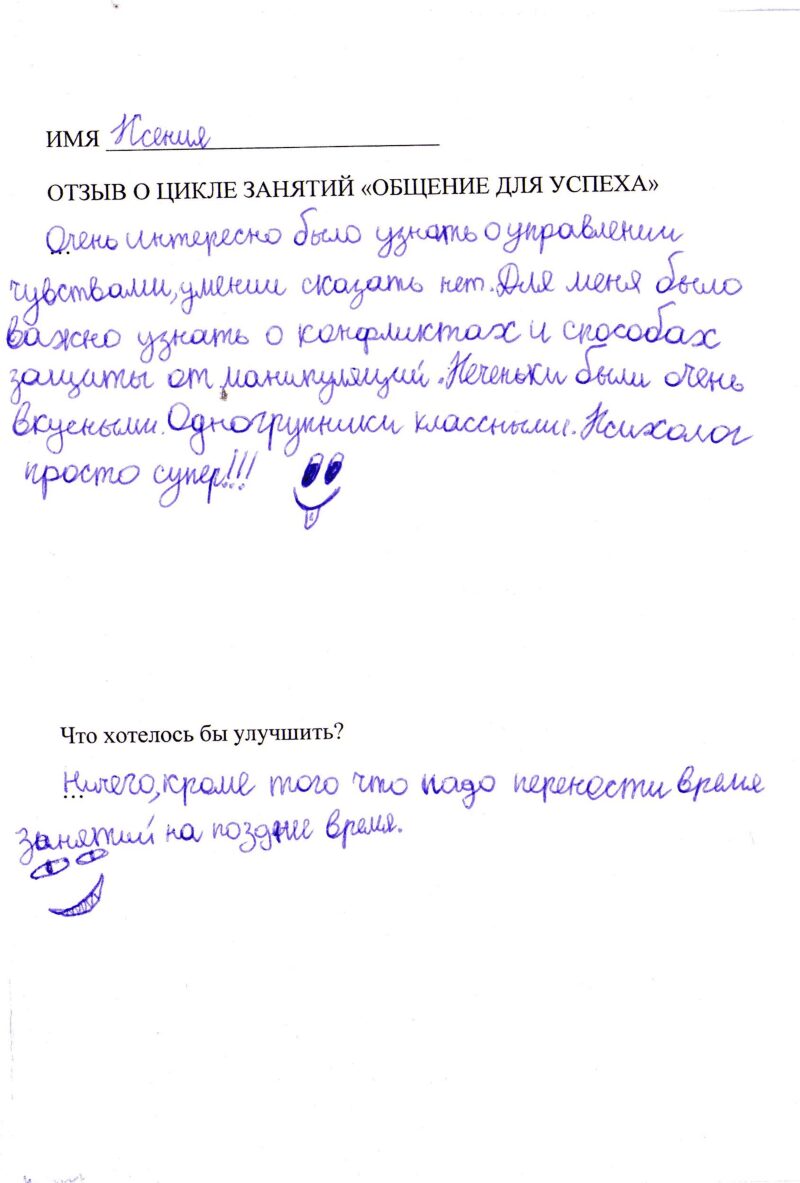 ИМЯ Ксения
ОТЗЫВ О ЦИКЛЕ ЗАНЯТИЙ «ОБЩЕНИЕ ДЛЯ УСПЕХА»
Очень интересно было узнать о управлении
чувствами, умении сказать нет. Для меня было
важно узнать о конфликтах и способах
защиты от манипуляций. Печеньки были очень
вкусными. Одногрупники классными. Психолог
просто супер!!!
Что хотелось бы улучшить?
Ничего, кроме того что надо перенести время
занятий на поздние время.